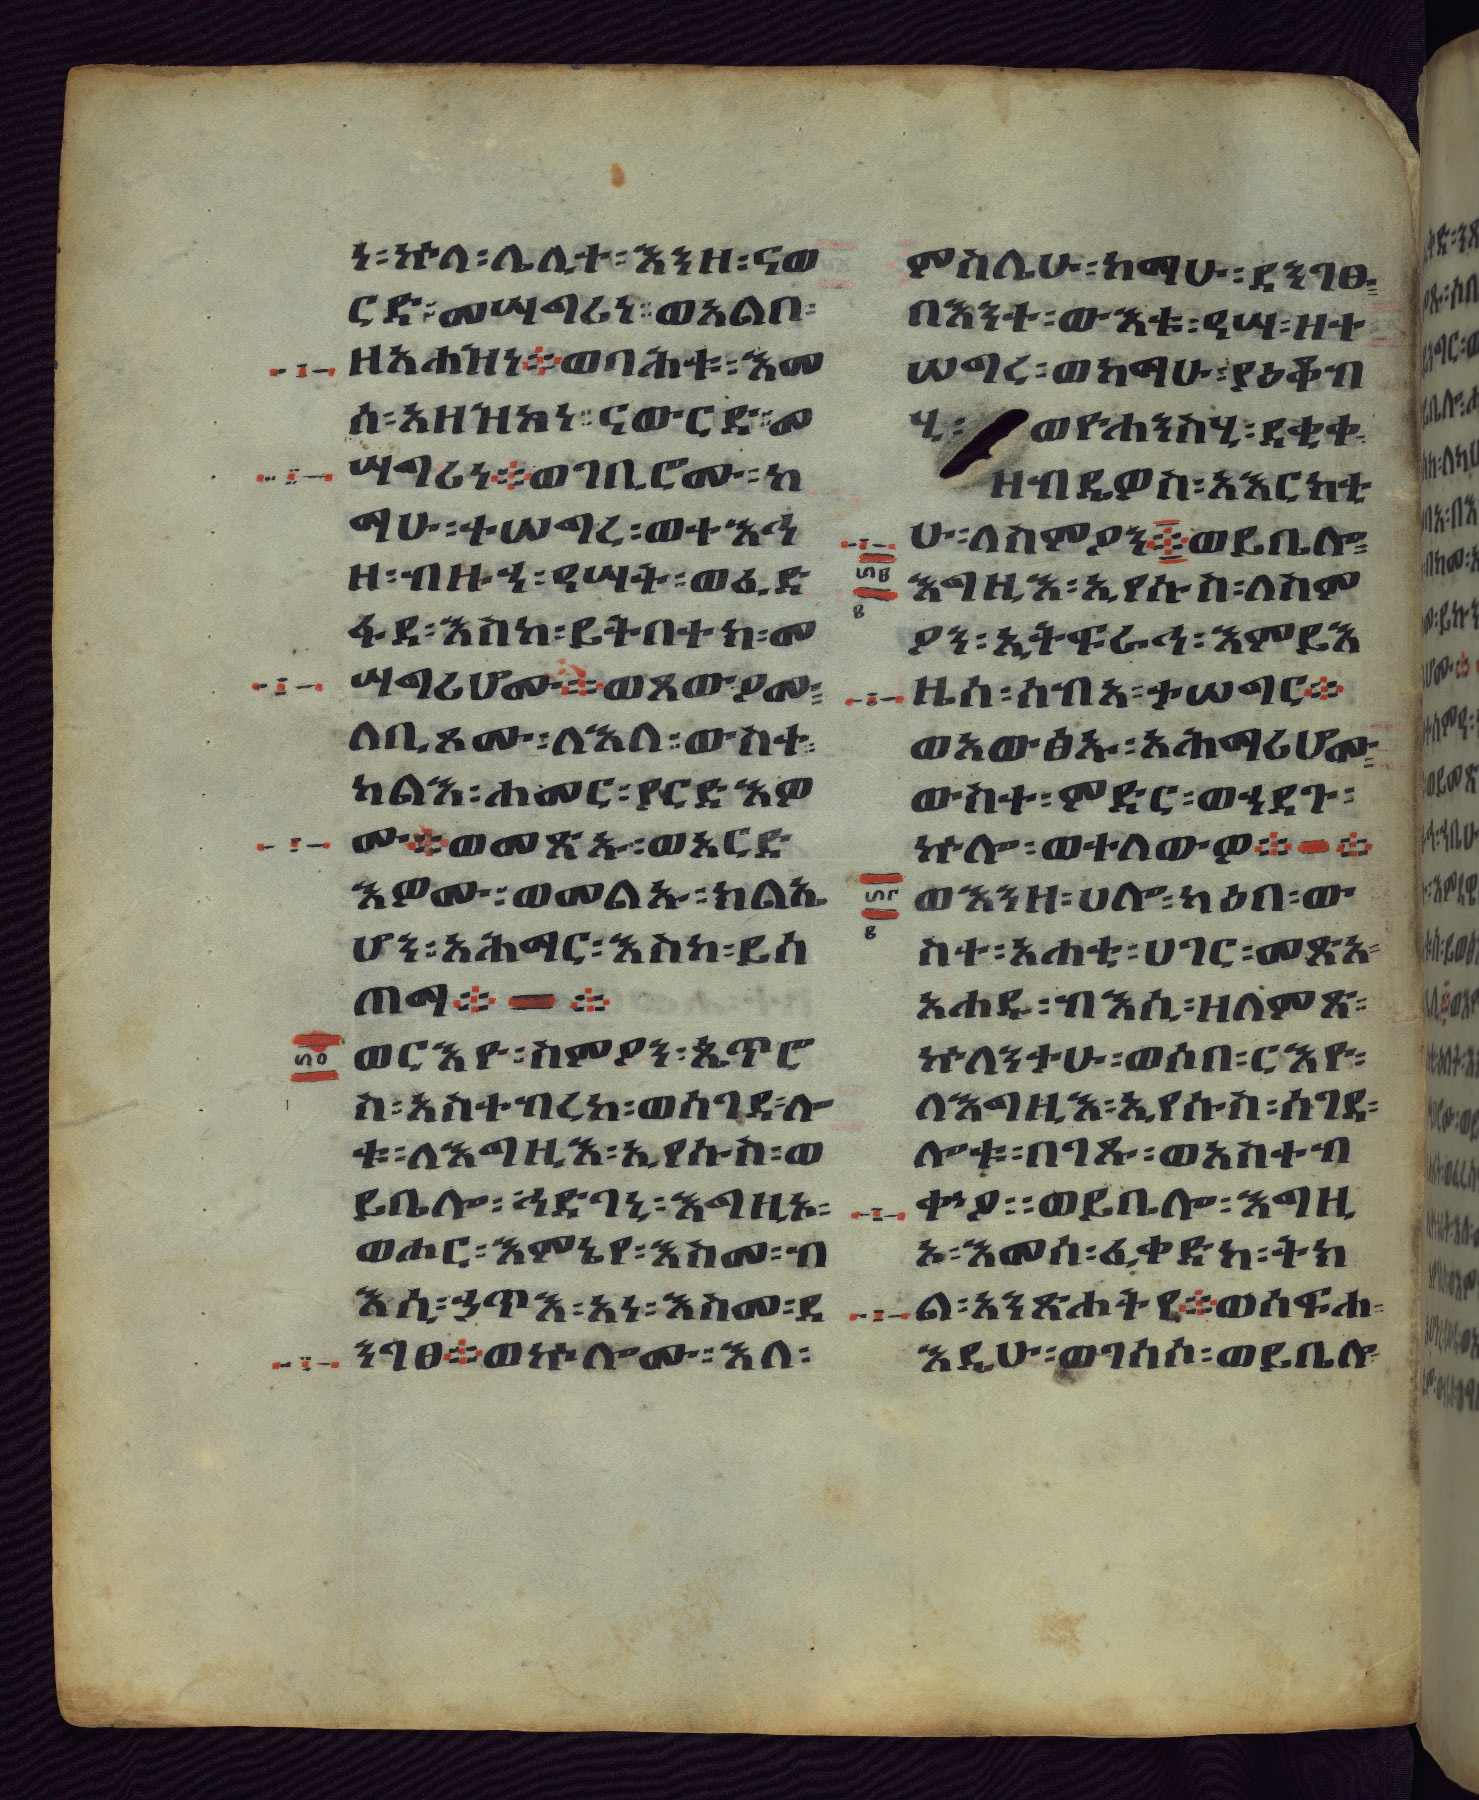 ነ፡ኵለ፡ሌሊተ፡እንዘ፡ናወ
ርድ፡መሣግሪነ፡ወአልቦ፡
ዘአሐዝነ፨ወባሕቱ፡እመ
ሰ፡አዘዝከነ፡ናውርድ፡መ
ሣግሪነ፨ወገቢሮሙ፡ከ
ማሁ፡ተሠግረ፡ወተእኅ
ዘ፡ብዙኅ፡ዓሣት፡ወፈድ
ፋደ፡እስከ፡ይትበተክ፡መ
ሣግሪሆሙ፨ወጸውዖሙ፡
ለቢጾሙ፡ለእለ፡ውስተ፡
ካልእ፡ሐመር፡ያርድእዎ
ሙ፨ወመጽኡ፡ወአርድ
እዎሙ፡ወመልኡ፡ክልኤ
ሆን፡አሕማር፡እስከ፡ይሰ
ጠማ፨ ፨
ወርእዮ፡ስምዖን፡ጴጥሮ
ስ፡አስተብረከ፡ወሰገደ፡ሎ
ቱ፡ለእግዚእ፡ኢየሱስ፡ወ
ይቤሎ፡ኅድገኒ፡እግዚኦ፡
ወሑር፡እምኔየ፡እስመ፡ብ
እሲ፡ኃጥእ፡አነ፡እስመ፡ደ
ንገፀ፨ወኵሎሙ፡እለ፡
ምስሌሁ፡ከማሁ፡ደንገፁ፡
በእንተ፡ውእቱ፡ዓሣ፡ዘተ
ሠግረ፡ወከማሁ፡ያዕቆብ
ሂ፡ወዮሐንስሂ፡ደቂቀ፡
ዘብዴዎስ፡አእርክቲ
ሁ፡ለስምዖን፨ወይቤሎ፡
እግዚእ፡ኢየሱስ፡ለስም
ዖን፡ኢትፍራኅ፡እምይእ
ዜሰ፡ሰብአ፡ተሠግር፨
ወአውፅኡ፡አሕማሪሆሙ፡
ውስተ፡ምድር፡ወኀደጉ፡
ኵሎ፡ወተለውዎ፨ ፨
ወእንዘ፡ሀሎ፡ካዕበ፡ው
ስተ፡አሐቲ፡ሀገር፡መጽአ፡
አሐዱ፡ብእሲ፡ዘለምጽ፡
ኵለንተሁ፡ወሶበ፡ርእዮ፡
ለእግዚእ፡ኢየሱስ፡ሰገደ፡
ሎቱ፡በገጹ፡ወአስተብ
ቍዖ፡፡ወይቤሎ፡እግዚ
ኦ፡እመሰ፡ፈቀድከ፡ትክ
ል፡አንጽሖትየ፨ወሰፍሐ፡
እዴሁ፡ወገሰሶ፡ወይቤሎ፡